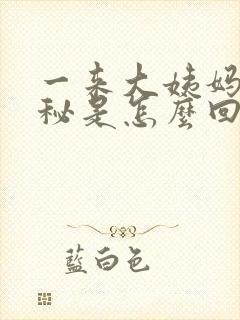 一来大姨妈
秘是怎麼回
藍白色